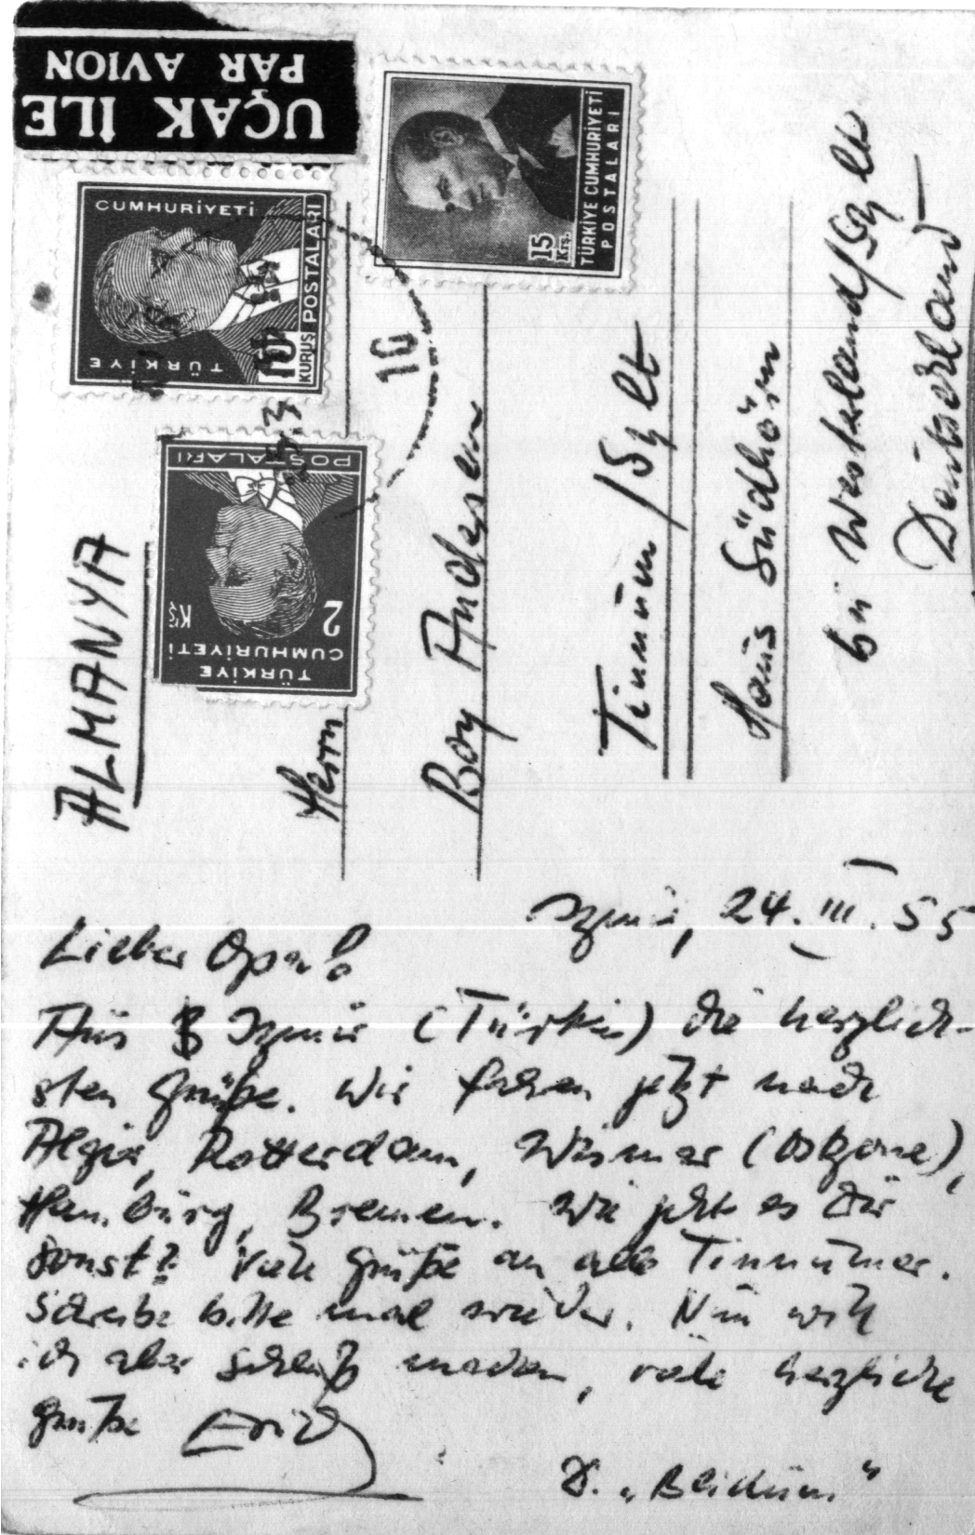 UÇAK İLE
PAR AVION
TÜRKİYE CUMHURİYETİ
POSTALARI
15
Krş.
TÜRKİYE
CUMHURİYETİ
POSTALARI
10
KURUŞ
TÜRKİYE
CUMHURİYETİ
2
Kş
POSTALARI
10
ALMANYA
Herrn
Boy Andersen
Tinnum / Sylt
Haus Südhörn
bei Westerland/Sylt
Deutschland
Izmir, 24. III. 55
Lieber Opa!
Aus Izmir (Türkei) die herzlich-
sten Grüße. Wir fahren jetzt nach
Algier, Rotterdam, Wismar (Ostzone),
Hamburg, Bremen. Wie geht es Dir
sonst? Viele Grüße an alle Tinnumer.
Schreibe bitte mal wieder. Nun will
ich aber Schluß machen, viele herzliche
Grüße Erich
D. „